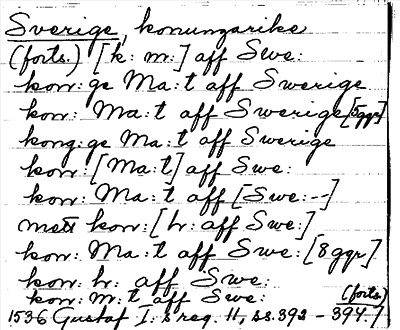 Sverige, konungarike
(forts.) [k: m:] aff Swe:
kon: ge Ma: t aff Swerige
kon: Ma: t aff Swerige [5 ggr]
kong: ge Ma: t aff Swerige
kon: [Ma: t] aff Swe:
kon: Ma: t aff [Swe: --]
mett kon: [h: aff Swe:]
kon: Ma: t aff Swe: [8 ggr]
kon: h: aff Swe:
kon: m: t aff Swe: (forts.)
1536 Gustaf I:s reg. 11, ss. 392 - 394.